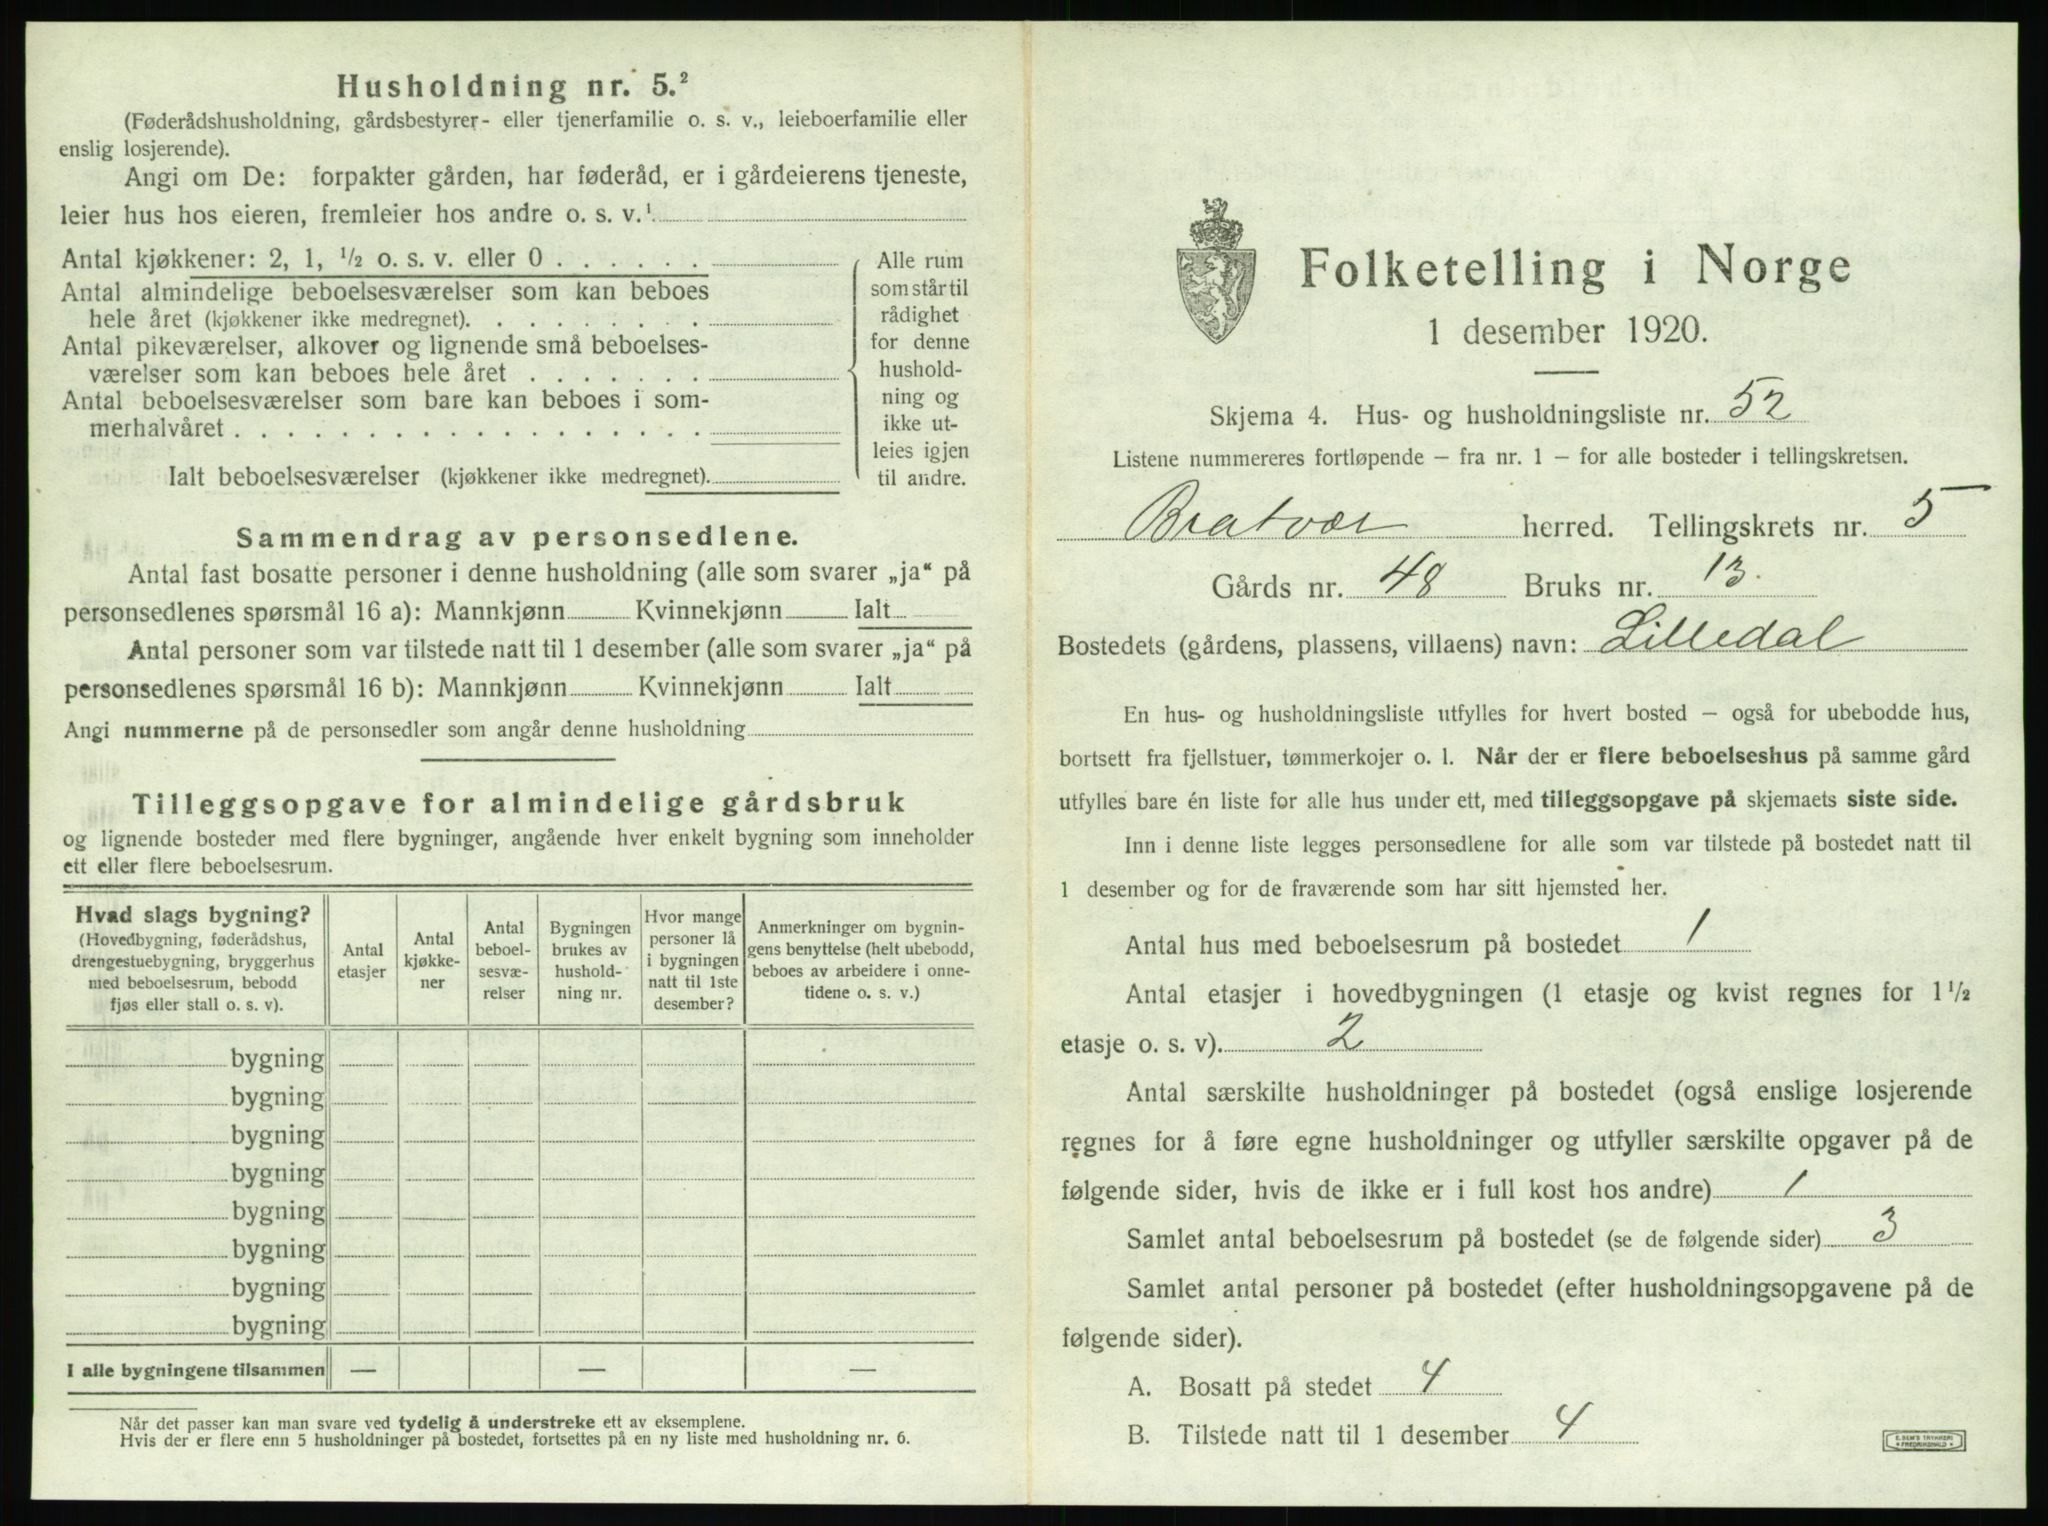 Husholdning nr. 5.²
(Føderådshusholdning, gårdsbestyrer- eller tjenerfamilie o. s. v., leieboerfamilie eller
enslig losjerende).
Angi om De: forpakter gården, har føderåd, er i gårdeierens tjeneste,
leier hus hos eieren, fremleier hos andre o. s. v.¹
Antal kjøkkener: 2, 1, ½ o. s. v. eller 0 . . . . . .
Antal almindelige beboelsesværelser som kan beboes
hele året (kjøkkener ikke medregnet). . . . . . . . .
Antal pikeværelser, alkover og lignende små beboelses-
værelser som kan beboes hele året . . . . . . .
Antal beboelsesværelser som bare kan beboes i som-
merhalvåret . . . . . . . . . . . . . . . . . .
Ialt beboelsesværelser (kjøkkener ikke medregnet).
Alle rum
som står til
rådighet
for denne
hushold-
ning og
ikke ut-
leies igjen
til andre.
Sammendrag av personsedlene.
Antal fast bosatte personer i denne husholdning (alle som svarer „ja“ på
personsedlenes spørsmål 16 a): Mannkjønn Kvinnekjønn Ialt
Antal personer som var tilstede natt til 1 desember (alle som svarer „ja“ på
personsedlenes spørsmål 16 b): Mannkjønn Kvinnekjønn Ialt
Angi nummerne på de personsedler som angår denne husholdning
Tilleggsopgave for almindelige gårdsbruk
og lignende bosteder med flere bygninger, angående hver enkelt bygning som inneholder
ett eller flere beboelsesrum.
Hvad slags bygning?
(Hovedbygning, føderådshus,
drengestuebygning, bryggerhus
med beboelsesrum, bebodd
fjøs eller stall o. s. v).
Antal
etasjer
Antal
kjøkke-
ner
Antal
beboel-
sesvæ-
relser
Bygningen
brukes av
hushold-
ning nr.
Hvor mange
personer lå
i bygningen
natt til 1ste
desember?
Anmerkninger om bygnin-
gens benyttelse (helt ubebodd,
beboes av arbeidere i onne-
tidene o. s. v.)
bygning
bygning
bygning
bygning
bygning
bygning
bygning
bygning
I alle bygningene tilsammen — — —
Når det passer kan man svare ved tydelig å understreke ett av eksemplene.
Hvis der er flere enn 5 husholdninger på bostedet, fortsettes på en ny liste med husholdning nr. 6.
Folketelling i Norge
1 desember 1920.
Skjema 4. Hus- og husholdningsliste nr. 52
Listene nummereres fortløpende – fra nr. 1 – for alle bosteder i tellingskretsen.
Bratvær herred. Tellingskrets nr. 5
Gårds nr. 48 Bruks nr. 13.
Bostedets (gårdens, plassens, villaens) navn: Lilledal
En hus- og husholdningsliste utfylles for hvert bosted – også for ubebodde hus,
bortsett fra fjellstuer, tømmerkojer o. l. Når der er flere beboelseshus på samme gård
utfylles bare én liste for alle hus under ett, med tilleggsopgave på skjemaets siste side.
Inn i denne liste legges personsedlene for alle som var tilstede på bostedet natt til
1 desember og for de fraværende som har sitt hjemsted her.
Antal hus med beboelsesrum på bostedet 1
Antal etasjer i hovedbygningen (1 etasje og kvist regnes for 1½
etasje o. s. v). 2
Antal særskilte husholdninger på bostedet (også enslige losjerende
regnes for å føre egne husholdninger og utfyller særskilte opgaver på de
følgende sider, hvis de ikke er i full kost hos andre) 1
Samlet antal beboelsesrum på bostedet (se de følgende sider) 3
Samlet antal personer på bostedet (efter husholdningsopgavene på de
følgende sider).
A. Bosatt på stedet 4
B. Tilstede natt til 1 desember 4
E. SEM'S TRYKKERI
FREDRIKSHALD